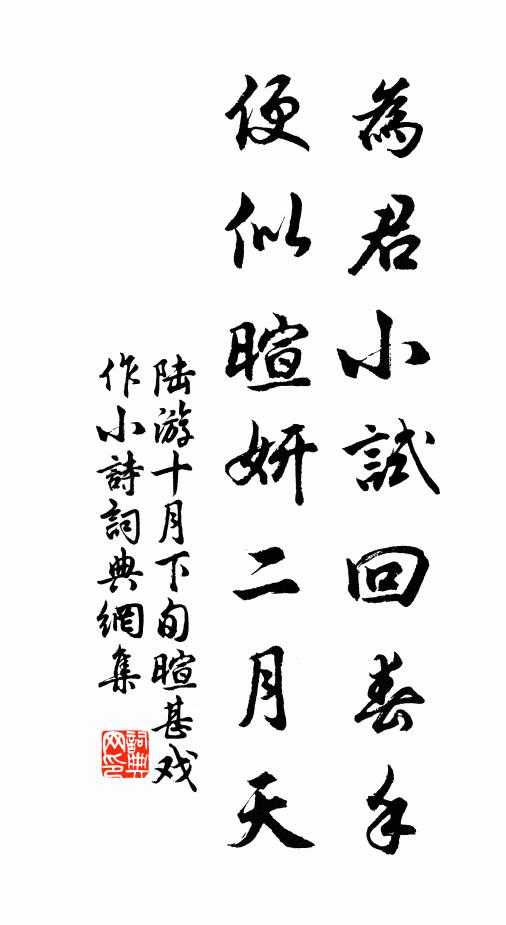 為君小試回春手
便似暄妍二月天
陆游十月下旬暄甚戏
作小詩詞典網集
詞典
网印